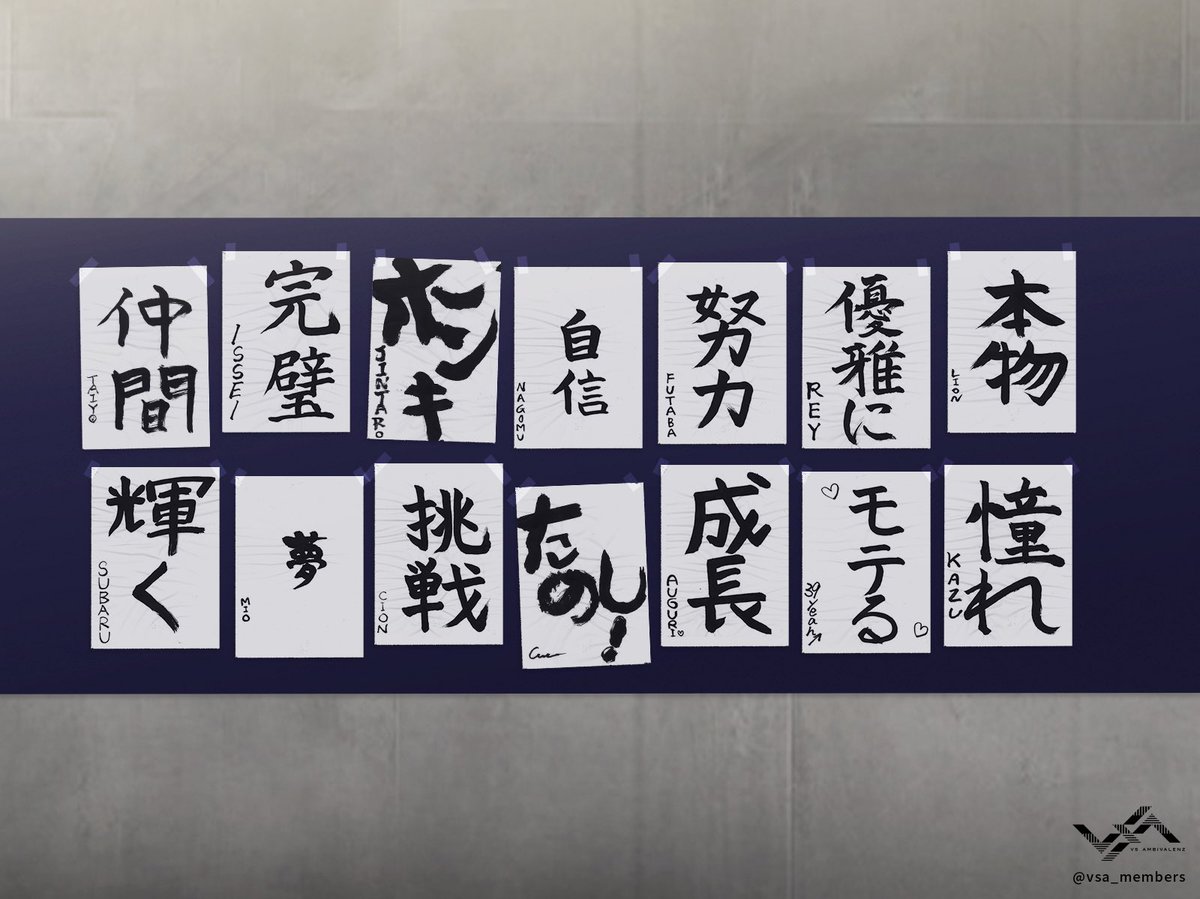 仲間
TAIYO
完璧
ISSEI
ホンキ
JINTARO
自信
NAGOMU
努力
FUTABA
優雅に
REY
本物
LION
輝く
SUBARU
夢
MIO
挑戦
CION
たのし!
成長
AUGURI♡
モテる
39yeah↗
憧れ
KAZU
VS AMBIVALENZ
@vsa_members